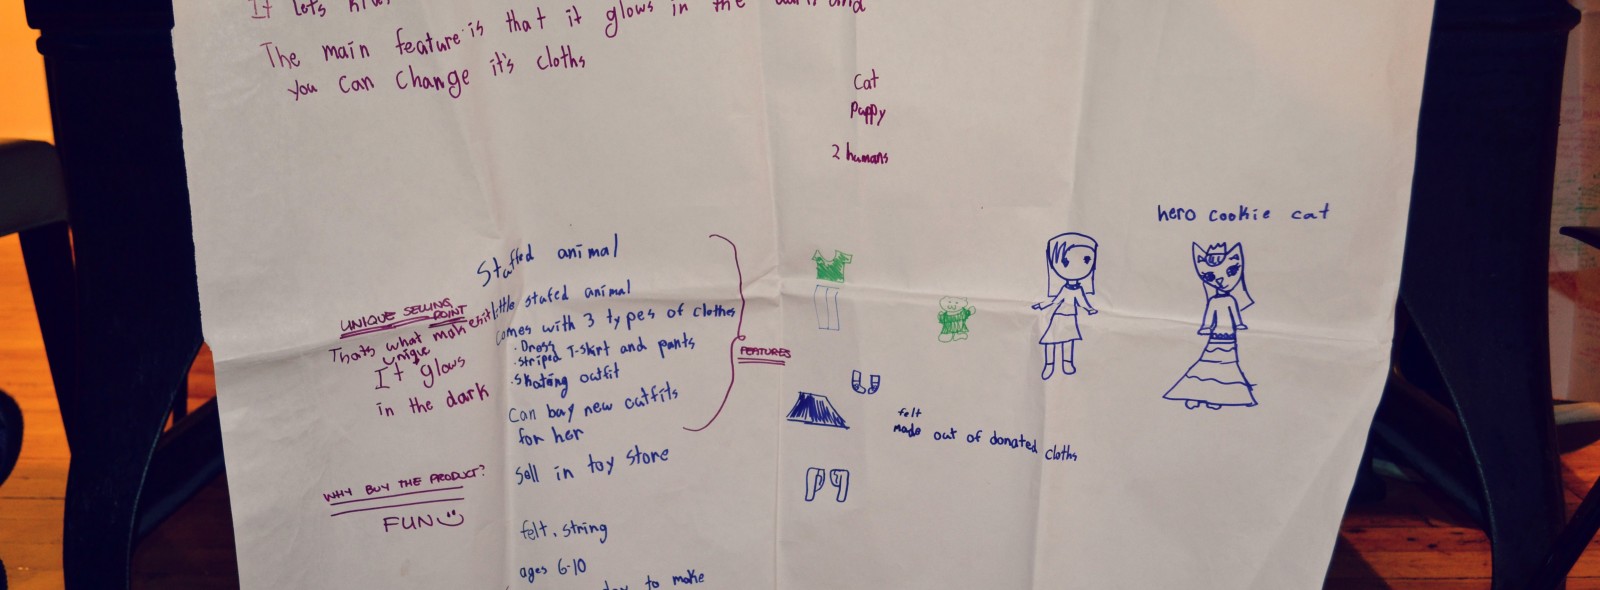 It lets
The main feature is that it glows in the dark and
you can change it's cloths
Cat
Puppy
2 humans
hero cookie cat
Stuffed animal
little stufed animal
comes with 3 types of clothes
• Dress
• Striped T-shirt and pants
• Skating outfit
Can buy new outfits
for her
Sell in toy store
felt, string
ages 6-10
to make
FEATURES
UNIQUE SELLING
POINT
Thats what makes it
unique
It glows
in the dark
WHY BUY THE PRODUCT?
FUN
felt
made out of donated cloths